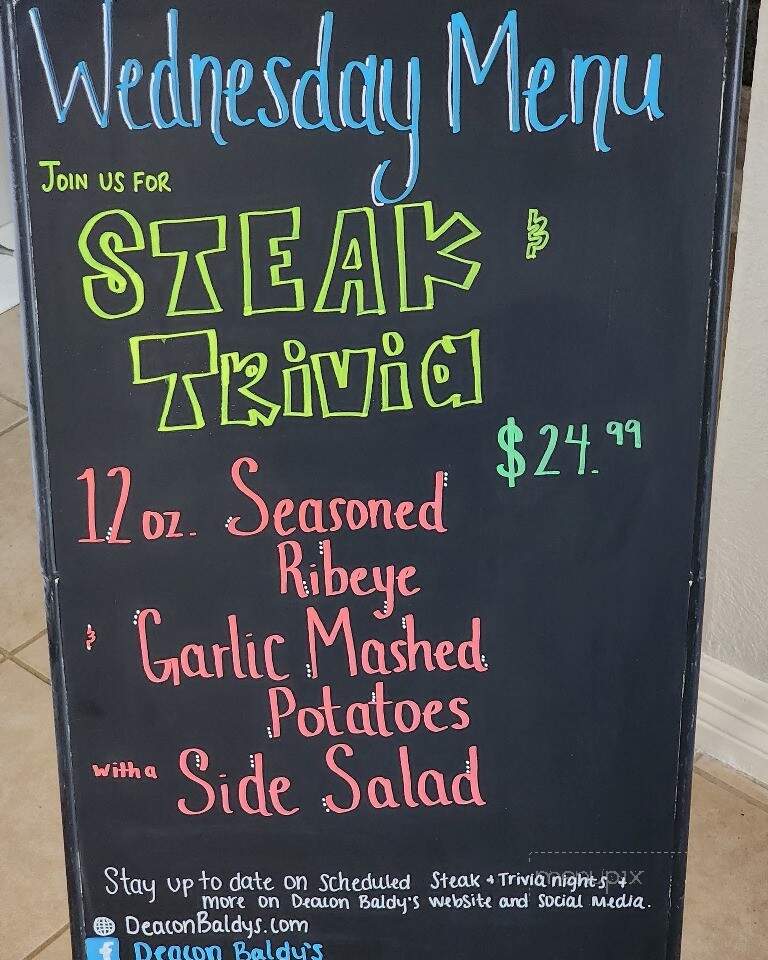 Wednesday Menu
JOIN US FOR
STEAK &
TRiViа
$24.99
12 oz. Seasoned
Ribeye
& Garlic Mashed
Potatoes
with a Side Salad
Stay up to date on Scheduled Steak & Trivia nights &
more on Deacon Baldy's website and Social Media.
DeaconBaldys.com
f Deacon Baldy's
menupix